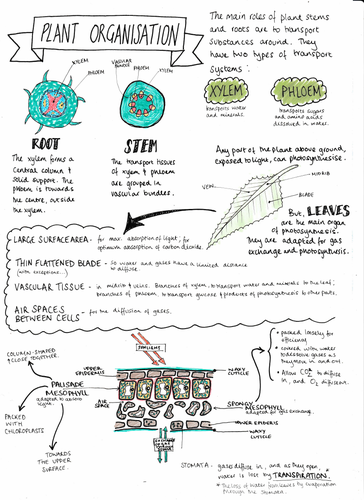 PLANT ORGANISATION
The main roles of plant stems
and roots are to transport
substances around. They
have two types of transport
systems:
XYLEM
transports water
and minerals.
PHLOEM
transports sugars
and amino acids
dissolved in water.
XYLEM
PHLOEM
VASCULAR
BUNDLE
PHLOEM
XYLEM
ROOT
The xylem forms a
central column &
solid support. The
phloem is towards
the centre, outside
the xylem.
STEM
The transport tissues
of xylem & phloem
are grouped in
vascular bundles.
Any part of the plant above ground,
exposed to light, can photosynthesise.
MIDRIB
VEIN
BLADE
But, LEAVES
are the main organ
of photosynthesis.
They are adapted for gas
exchange and photosynthesis.
LARGE SURFACE AREA - for max. absorption of light; for
optimum absorption of carbon dioxide.
THIN FLATTENED BLADE - so water and gases have a limited distance
(with exceptions...) to diffuse.
VASCULAR TISSUE - in midrib & veins. Branches of xylem to transport water and minerals to the leaf;
branches of phloem to transport glucose & products of photosynthesis to other parts.
AIR SPACES
BETWEEN CELLS - for the diffusion of gases.
COLUMN-SHAPED
& CLOSE TOGETHER.
SUNLIGHT
UPPER
EPIDERMIS
WAXY
CUTICLE
PALISADE
MESOPHYLL
AIR
SPACE
SPONGY
MESOPHYLL
adapted for gas exchange.
LOWER EPIDERMIS
WAXY
CUTICLE
PACKED
WITH
CHLOROPLASTS
TOWARDS
THE UPPER
SURFACE.
packed loosely for
efficient
covered with water
to dissolve gases as
they move in and out.
Allow CO2 to diffuse
in, and O2 different.
STOMATA - gases diffuse in, and as they open,
water is lost by TRANSPIRATION.*
*the loss of water from leaves by evaporation
through the stomata.